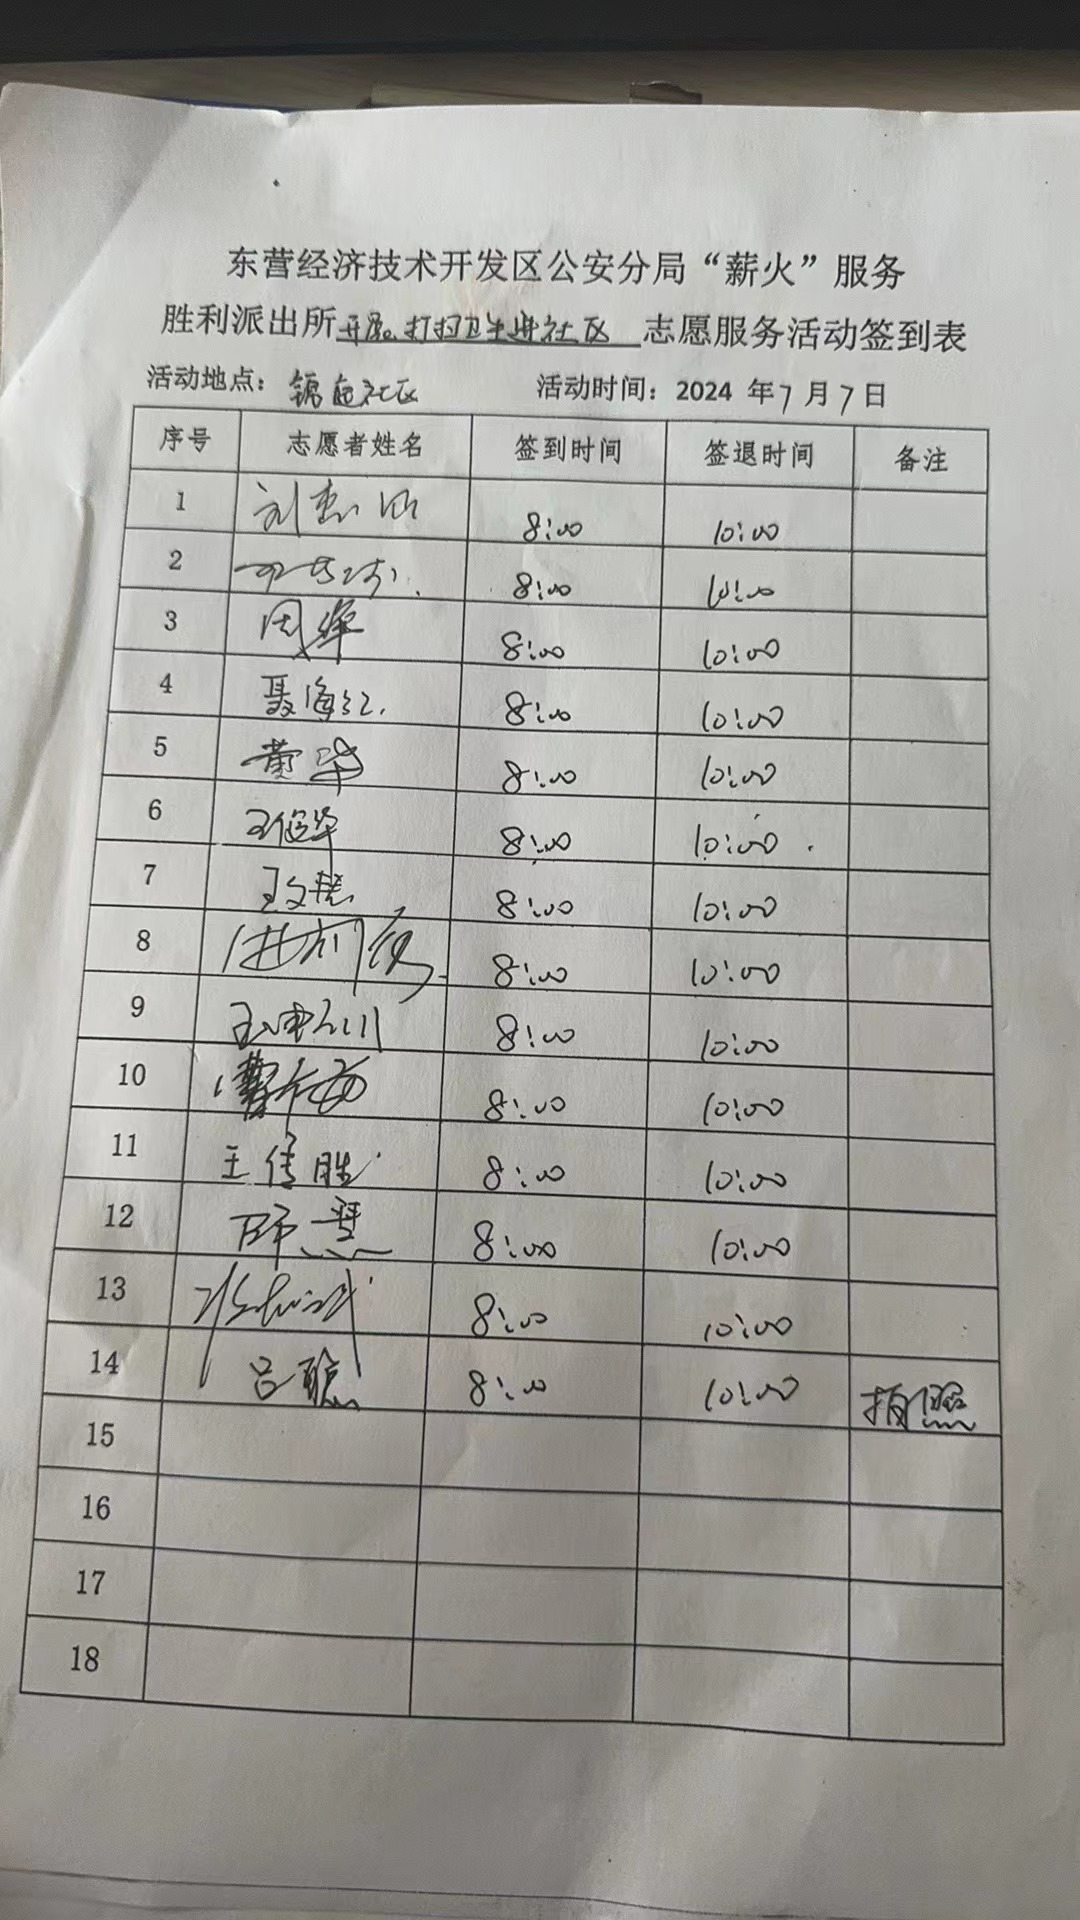 东营经济技术开发区公安分局“薪火”服务
胜利派出所开展打扫卫生进社区志愿服务活动签到表
活动地点： 社区 活动时间：2024 年7月7日
序号 志愿者姓名 签到时间 签退时间 备注
1 8:00 10:00
2 8:00 10:00
3 周华 8:00 10:00
4 聂海红 8:00 10:00
5 黄 8:00 10:00
6 王俊华 8:00 10:00
7 王文慧 8:00 10:00
8 8:00 10:00
9 8:00 10:00
10 曹 8:00 10:00
11 王传胜 8:00 10:00
12 师慧 8:00 10:00
13 8:00 10:00
14 吕聪 8:00 10:00 拍照
15
16
17
18